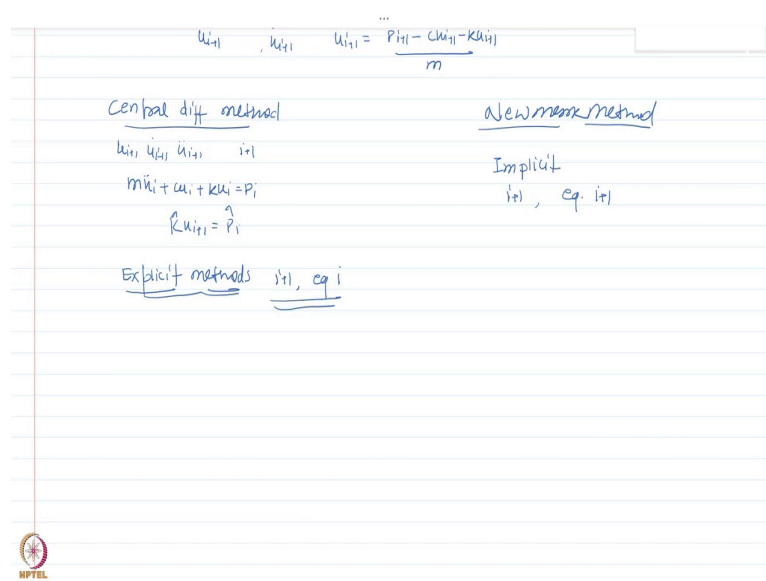 ...
u_{i+1} , u̇_{i+1} ü_{i+1} = p_{i+1} - cu̇_{i+1} - ku_{i+1}
m
Central diff method
u_{i+1}, u̇_{i+1}, ü_{i+1}, i+1
mü_i + cu̇_i + ku_i = p_i
k̂ u_{i+1} = p̂_i
Explicit methods i+1, eq i
Newmark Method
Implicit
i+1, eq. i+1
NPTEL